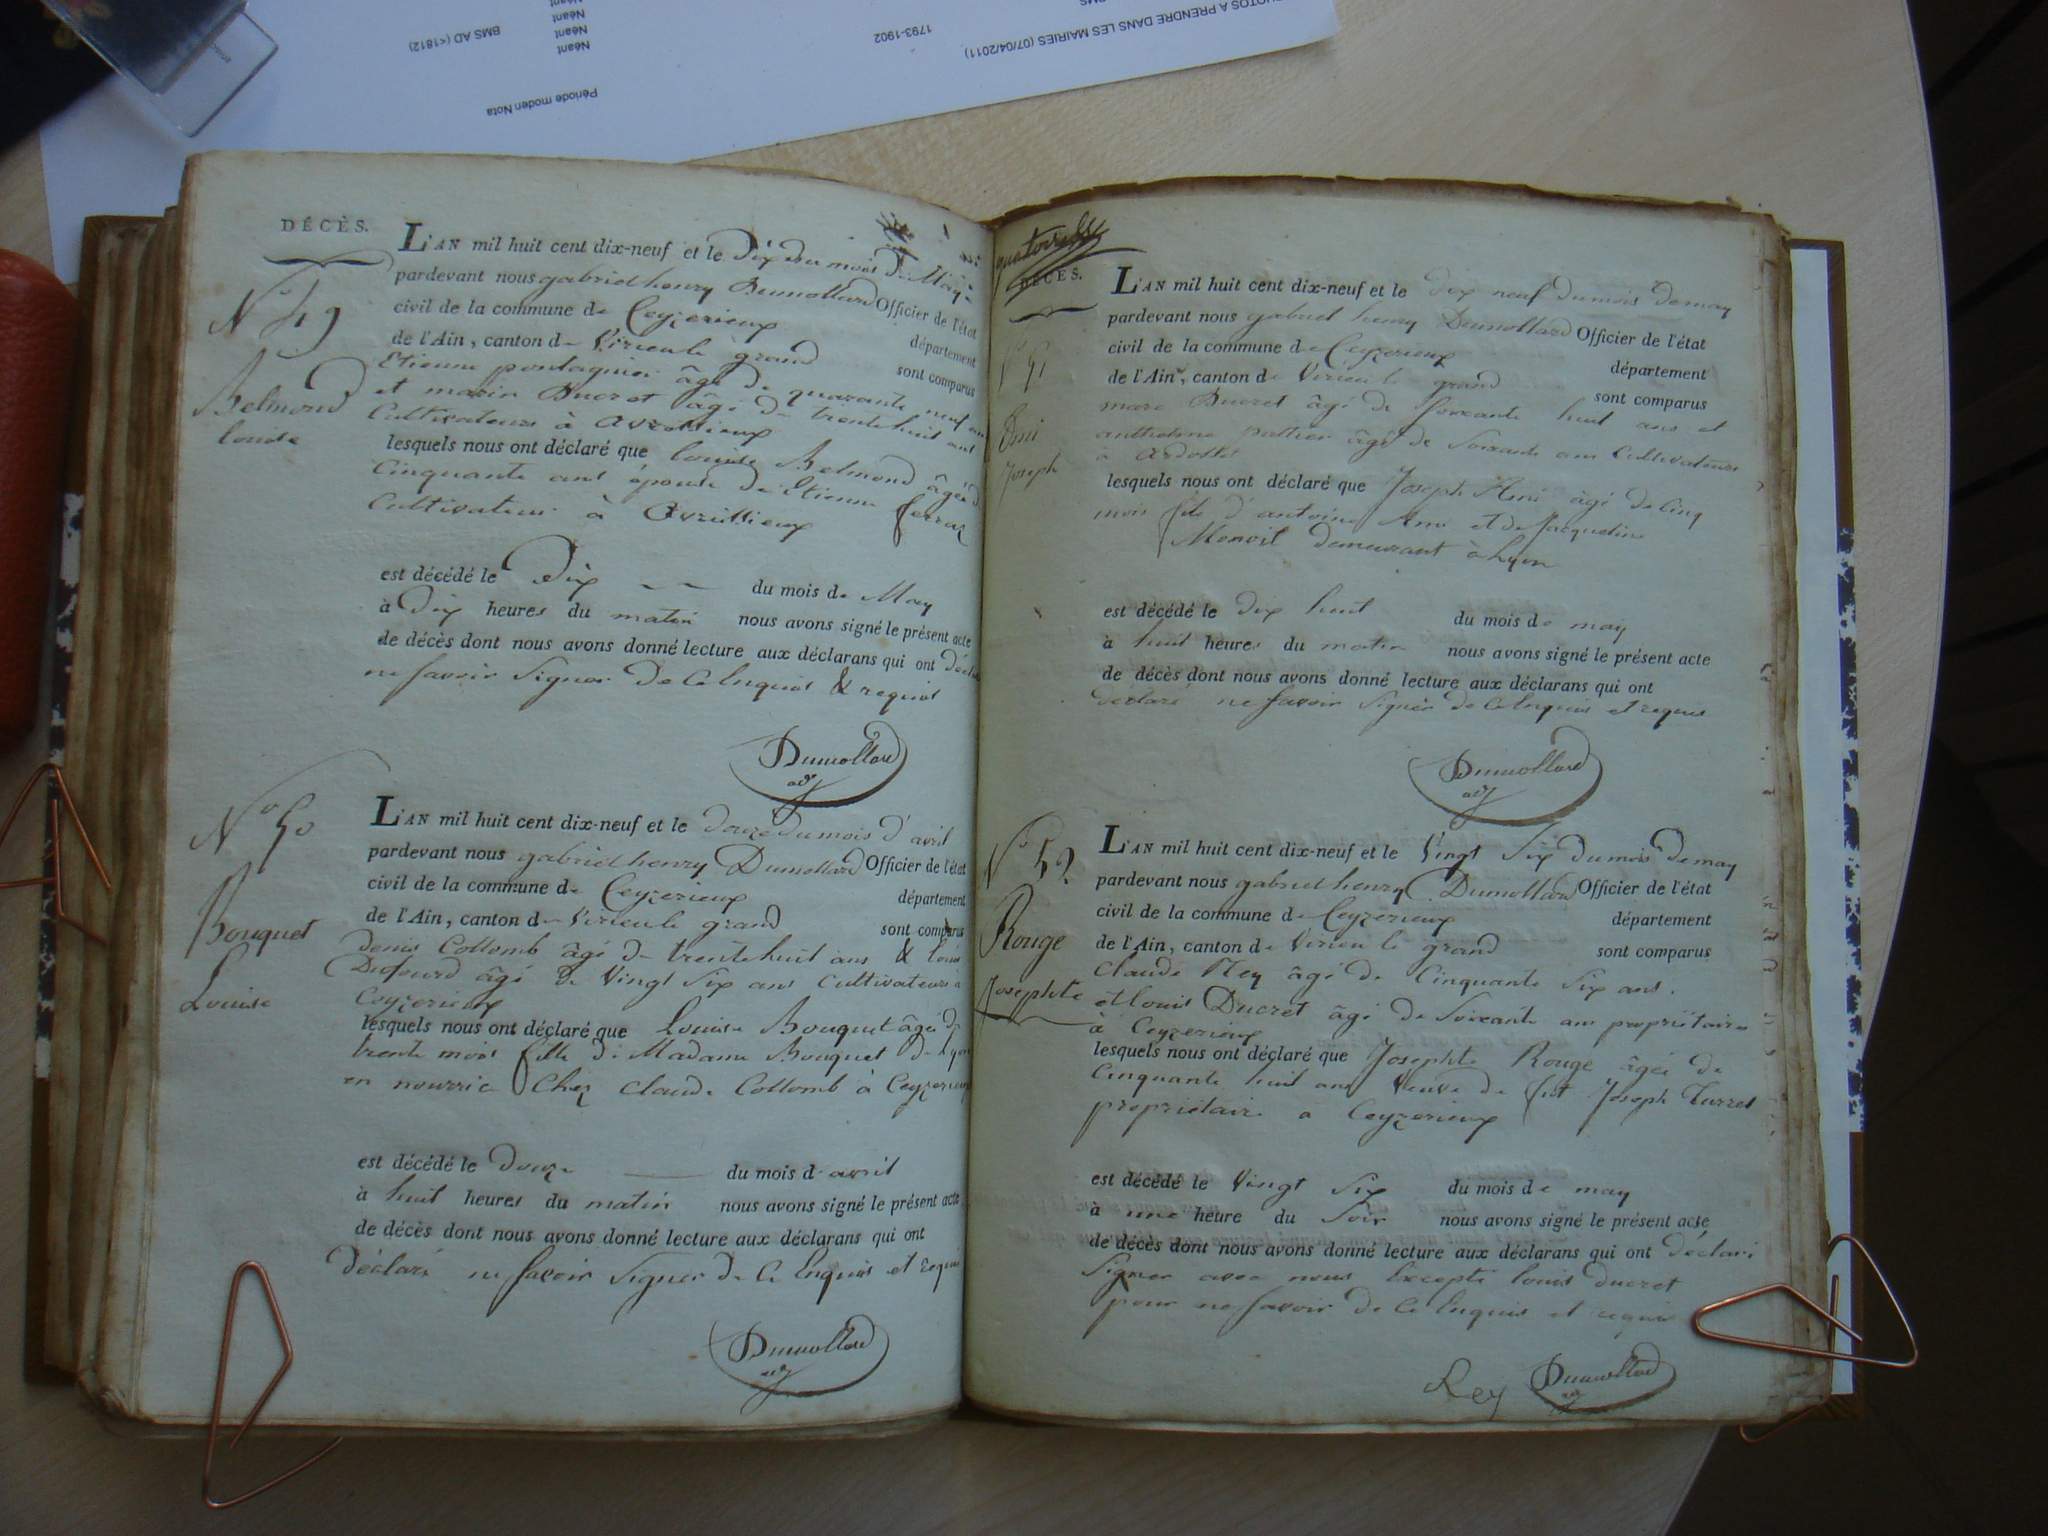 PHOTOS A PRENDRE DANS LES MAIRIES (07/04/2011)
1793-1902
BMS AD (<1812)
Néant
Néant
Néant
Période moden Nota
DÉCÈS.
N° 49
Belmond
louise
L'AN mil huit cent dix-neuf et le Dix du mois de May
pardevant nous gabriel henry Dumollard Officier de l'état
civil de la commune de Ceyzerieux département
de l'Ain, canton de Virieu le grand sont comparus
Etienne pontagnier âgé de quarante neuf ans
et marin Ducret âgé de trente huit ans
Cultivateurs à avrissieux
lesquels nous ont déclaré que louise Belmond âgée de
Cinquante ans épouse de Etienne ferraz
Cultivateur à Avrissieux
est décédé le Dix du mois de May
à Dix heures du matin nous avons signé le présent acte
de décès dont nous avons donné lecture aux déclarans qui ont déclaré
ne savoir Signer De Ce Enquis & requis
Dumollard
adj
N° 50
Bouquet
Louise
L'AN mil huit cent dix-neuf et le douze du mois d'avril
pardevant nous gabriel henry Dumollard Officier de l'état
civil de la commune de Ceyzerieux département
de l'Ain, canton de Virieu le grand sont comparus
denis Collomb âgé de trente huit ans & louis
Dufourd âgé de Vingt Six ans Cultivateurs à
Ceyzerieux
lesquels nous ont déclaré que Louise Bouquet âgée de
trente mois fille de Madame Bouquet de Lyon
en nourrice Chez Claude Collomb à Ceyzerieux
est décédé le douze du mois d'avril
à huit heures du matin nous avons signé le présent acte
de décès dont nous avons donné lecture aux déclarans qui ont
déclaré ne savoir Signer de Ce Enquis et requis
Dumollard
adj
DÉCÈS.
N° 51
Joseph
L'AN mil huit cent dix-neuf et le dix neuf du mois de may
pardevant nous gabriel henry Dumollard Officier de l'état
civil de la commune de Ceyzerieux département
de l'Ain, canton de Virieu le grand sont comparus
marc Ducret âgé de Soixante huit ans et
anthelme pattier âgé de Soixante ans Cultivateurs
à
lesquels nous ont déclaré que Joseph Ami âgé de Cinq
mois fils d'antoine Ami et de Jacqueline
Menoit demeurant à Lyon
est décédé le dix huit du mois de may
à huit heures du matin nous avons signé le présent acte
de décès dont nous avons donné lecture aux déclarans qui ont
déclaré ne savoir Signer de Ce Enquis et requis
Dumollard
adj
N° 52
Rouge
Josephte
L'AN mil huit cent dix-neuf et le Vingt Six du mois de may
pardevant nous gabriel henry Dumollard Officier de l'état
civil de la commune de Ceyzerieux département
de l'Ain, canton de Virieu le grand sont comparus
Claude Rey âgé de Cinquante Six ans.
et louis Ducret âgé de Soixante ans propriétaires
à Ceyzerieux
lesquels nous ont déclaré que Josephte Rouge âgée de
Cinquante huit ans Veuve de fut Joseph Turrel
propriétaire à Ceyzerieux
est décédé le Vingt Six du mois de may
à une heure du Soir nous avons signé le présent acte
de décès dont nous avons donné lecture aux déclarans qui ont déclaré
Signer avec nous Excepté louis ducret
pour ne savoir de Ce Enquis et requis
Rey Dumollard
adj